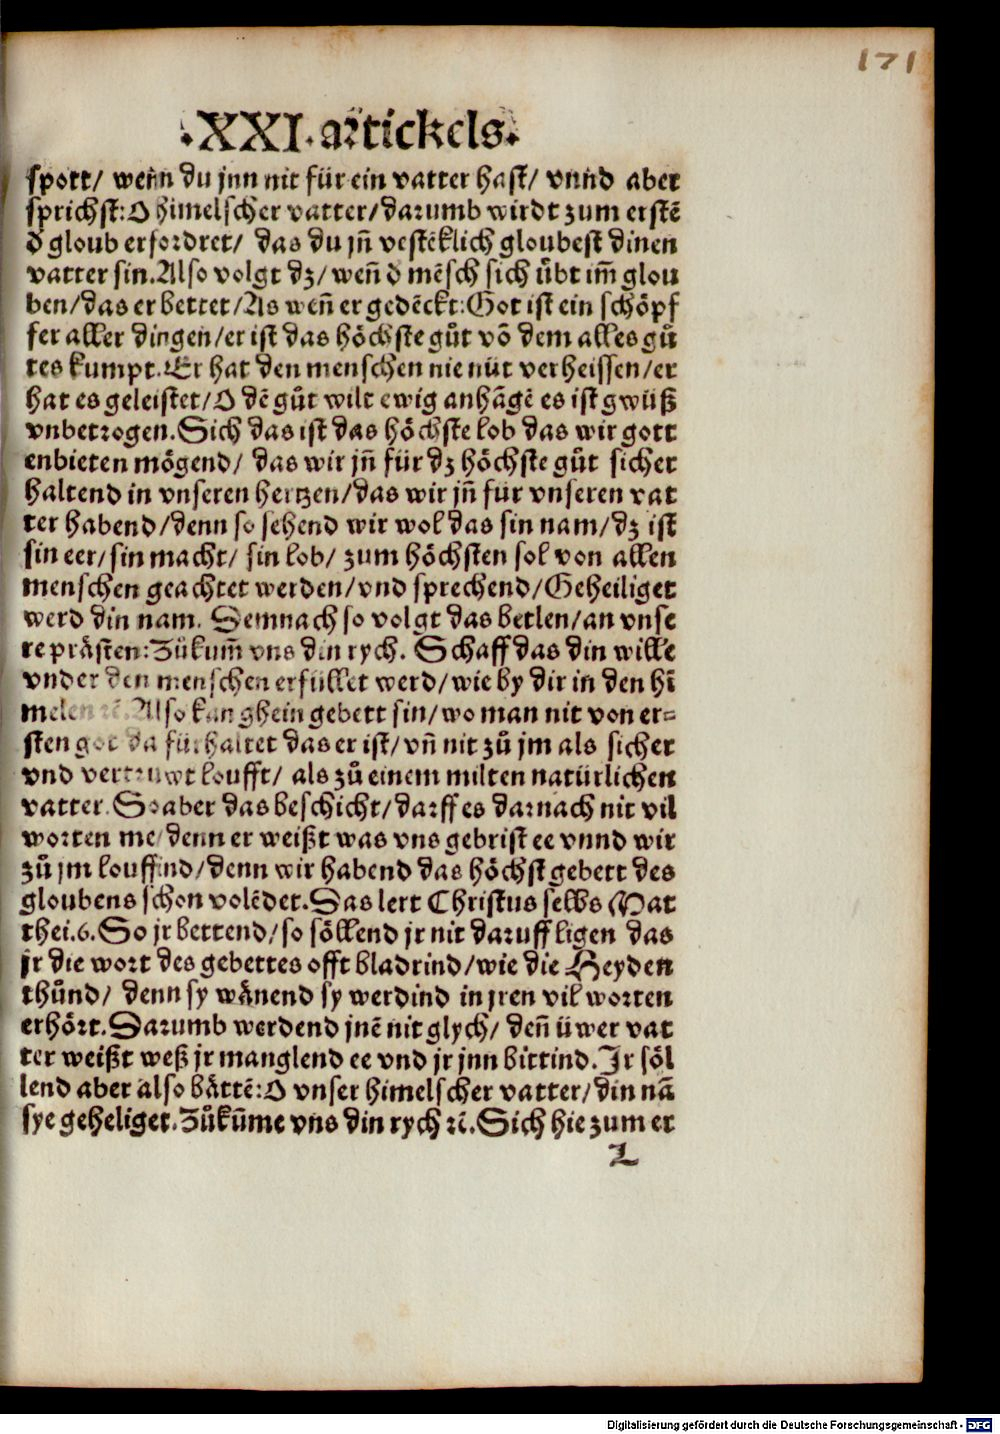 171
.XXI. artickels.
spott/ wenn du jnn nit für ein vatter hast/ vnnd aber
sprichst: O himelscher vatter/ darumb wirdt zum erstē
d gloub erfordret/ das du jn̄ vestēklich gloubest dinen
vatter sin. Also volgt dz/ weñ d mēsch sich übt im̄ glou
ben/ das er bettet/ As weñ er gedēckt: Got ist ein schöpf
fer aller dingen/ er ist das höchste gůt vō dem alles gů
tes kumpt. Er hat den menschen nie nüt verheissen/ er
hat es geleistet/ O dē gůt wilt ewig anhāgē es ist gwüß
vnbetrogen. Sich das ist das höchste lob das wir gott
enbieten mögend/ das wir jn̄ für dz höchste gůt sicher
haltend in vnseren hertzen/ das wir jn̄ für vnseren vat
ter habend/ denn so sehend wir wol das sin nam/ dz ist
sin eer/ sin macht/ sin lob/ zum höchsten sol von allen
menschen geachtet werden/ vnd sprechend/ Geheiliget
werd din nam. Demnach so volgt das betlen/ an vnse
re prästen: Zůkum̄ vns din rych. Schaff das din wille
vnder den menschen erfüllet werd/ wie by dir in den hī
melen ꝛc̄. Also kan ghein gebett sin/ wo man nit von er=
sten got da für haltet das er ist/ vn̄ nit zů jm als sicher
vnd vertruwt loufft/ als zů einem milten natürlichen
vatter. So aber das beschicht/ darff es darnach nit vil
worten me/ denn er weißt was vns gebrist ee vnnd wir
zů jm louffind/ denn wir habend das höchst gebett des
gloubens schon volēdet. Das lert Christus selbs Mat
thei. 6. So jr bettend/ so söllend jr nit daruff ligen das
jr die wort des gebettes offt bladrind/ wie die Heyden
thůnd/ denn sy wänend sy werdind in jren vil worten
erhört. Darumb werdend jnē nit glych/ den̄ üwer vat
ter weißt weß jr manglend ee vnd jr jnn bittind. Jr söl
lend aber also bättē: O vnser himelscher vatter/ din nā
sye geheliget. Zůkūme vns din rych ꝛc̄. Sich hie zum er
L
Digitalisierung gefördert durch die Deutsche Forschungsgemeinschaft - DFG